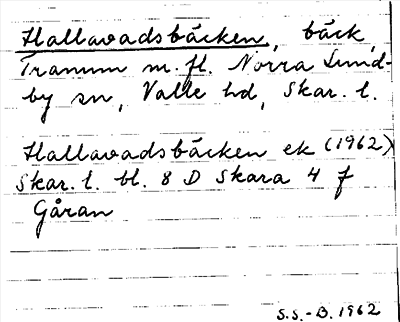 Hallavadsbäcken, bäck
Tranum m.fl. Norra Lund-
by sn, Valle hd, Skar. l.
Hallavadsbäcken ek (1962)
Skar. l. bl. 8 D Skara 4 f
Gåran
S.S.-B. 1962